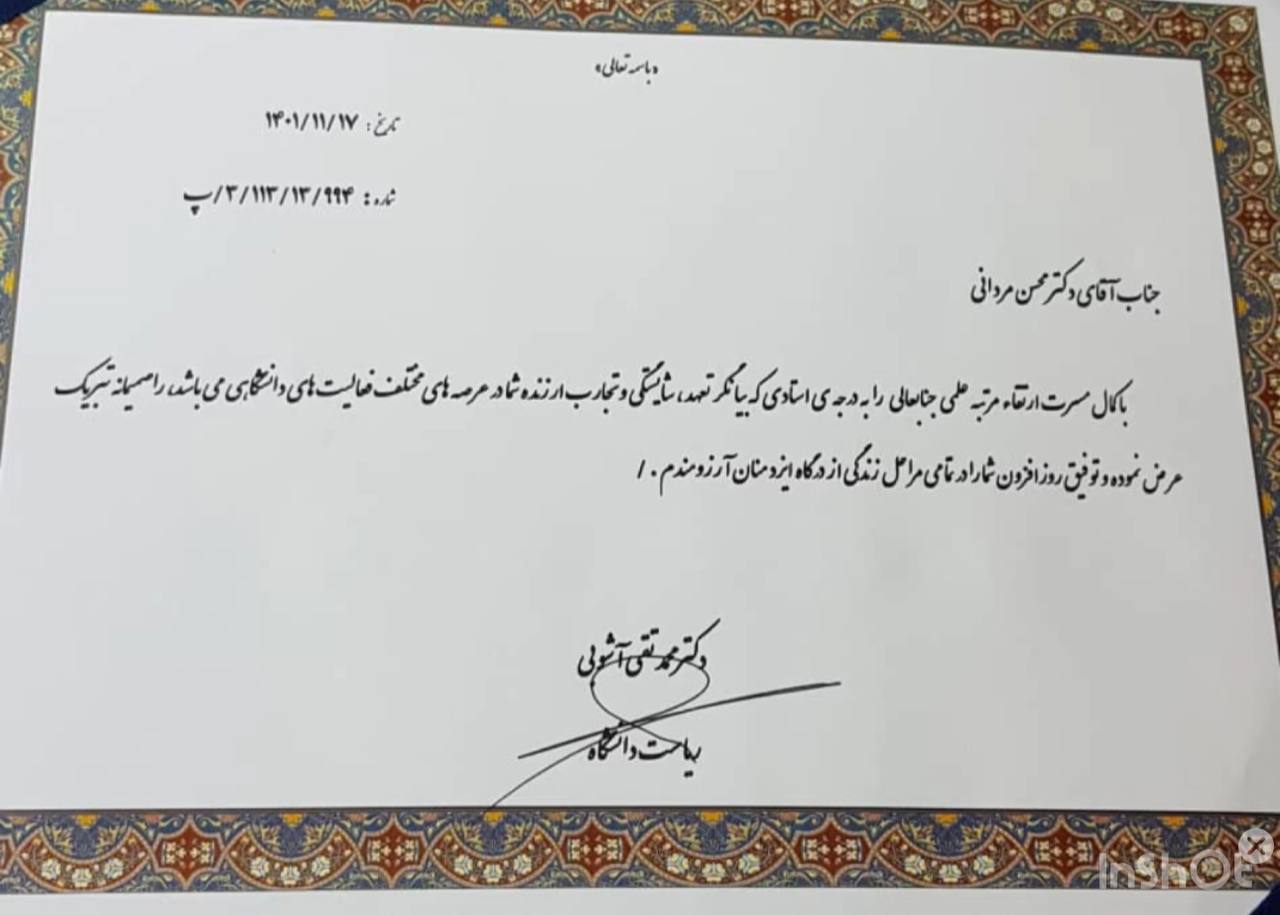 «باسمه تعالی»
تاریخ: ۱۴۰۱/۱۱/۱۷
شماره: ۹۹۴/۱۳/۱۱۳/۳/پ
جناب آقای دکتر محسن مردانی
با کمال مسرت ارتقاء مرتبه علمی جنابعالی را به درجه ی استادی که بیانگر تعهد، شایستگی و تجارب ارزنده شما در عرصه های مختلف فعالیت های دانشگاهی می باشد، را صمیمانه تبریک
عرض نموده و توفیق روز افزون شما را در تمامی مراحل زندگی از درگاه ایزد منان آرزومندم. /
دکتر محمد تقی آشوبی
ریاست دانشگاه
InShOt